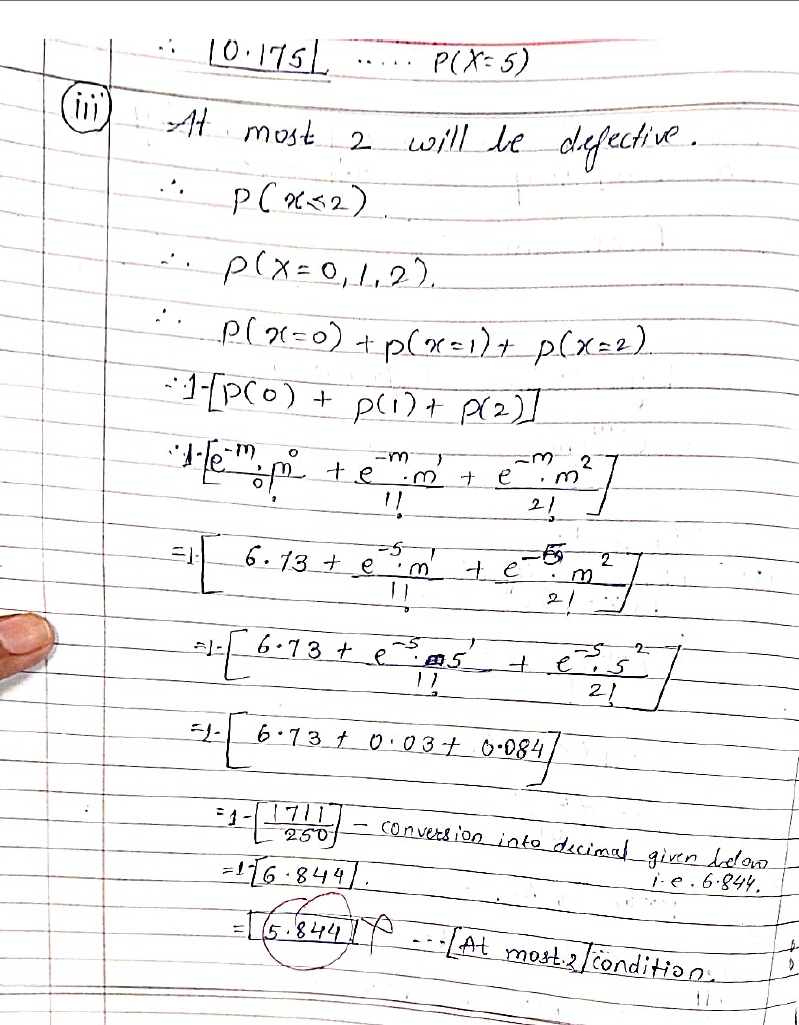 ∴ |0.175| ..... P(X=5)
(iii) At most 2 will be defective.
∴ P(x≤2)
∴ P(X=0,1,2).
∴ P(x=0) + p(x=1) + p(x=2)
∴ 1-[P(0) + p(1) + p(2)]
∴ 1-[e^-m . m^0 / 0! + e^-m . m^1 / 1! + e^-m . m^2 / 2!]
=1-[6.73 + e^-5 . m^1 / 1! + e^-5 . m^2 / 2!]
=1-[6.73 + e^-5 . 5^1 / 1! + e^-5 . 5^2 / 2!]
=1-[6.73 + 0.03 + 0.084]
=1-[1711/250] - conversion into decimal given below
=1-[6.844]. i.e. 6.844.
=[5.844] ---[At most 2] condition.